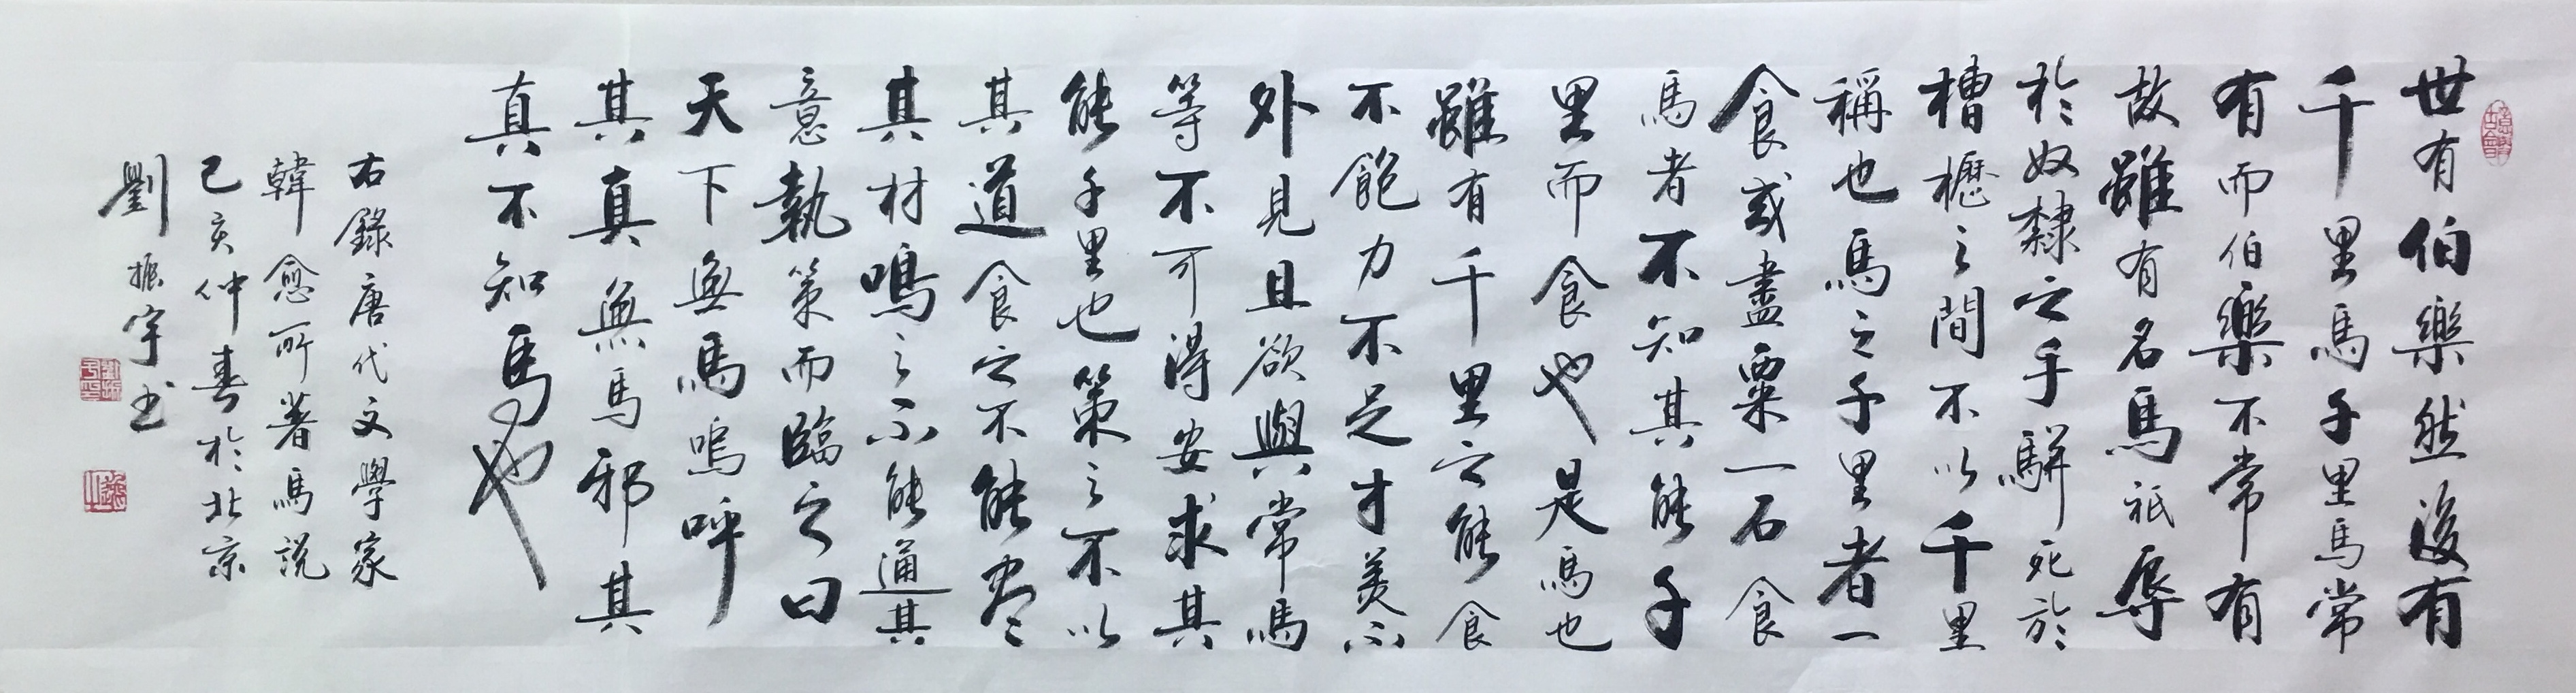 世有伯樂然後有
千里馬千里馬常
有而伯樂不常有
故雖有名馬祇辱
於奴隸之手駢死於
槽櫪之間不以千里
稱也馬之千里者一
食或盡粟一石食
馬者不知其能千
里而食也是馬也
雖有千里之能食
不飽力不足才美不
外見且欲與常馬
等不可得安求其
能千里也策之不以
其道食之不能盡
其材鳴之不能通其
意執策而臨之曰
天下無馬嗚呼
其真無馬邪其
真不知馬也
右錄唐代文學家
韓愈所著馬説
己亥仲春於北京
劉振宇书